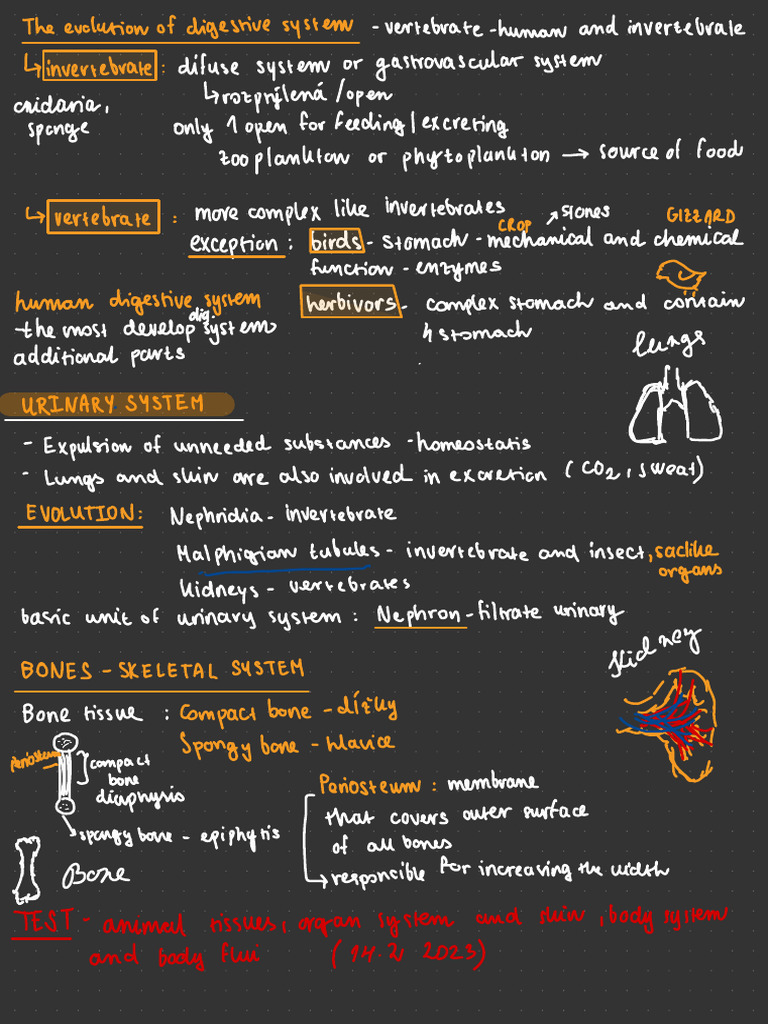 The evolution of digestive system - vertebrate - human and invertebrale
↳ invertebrate : difuse system or gastrovascular system
↳ rozptýlená / open
cnidaria,
sponge
only 1 open for feeding / excreting
zooplankton or phytoplankton → source of food
↳ vertebrate : more complex like invertebrates
exception : birds - stomach - mechanical and chemical
CROP
stones
GIZZARD
function - enzymes
human digestive system
- the most develop dig. system
additional parts
herbivors - complex stomach and contain
4 stomach
lungs
URINARY SYSTEM
- Expulsion of unneeded substances - homeostatis
- Lungs and skin are also involved in excretion (CO2, sweat)
EVOLUTION: Nephridia - invertebrate
Malphigian tubules - invertebrate and insect, saclike organs
kidneys - vertebrates
basic unit of urinary system : Nephron - filtrate urinary
kidney
BONES - SKELETAL SYSTEM
Bone tissue : Compact bone - dížky
Spongy bone - hlavice
Periosteum
compact
bone
diaphysis
spongy bone - epiphytis
Bone
Periosteum : membrane
that covers outer surface
of all bones
↳ responsible for increasing the width
TEST - animal tissues, organ system and skin, body system
and body flui (14.2 2023)